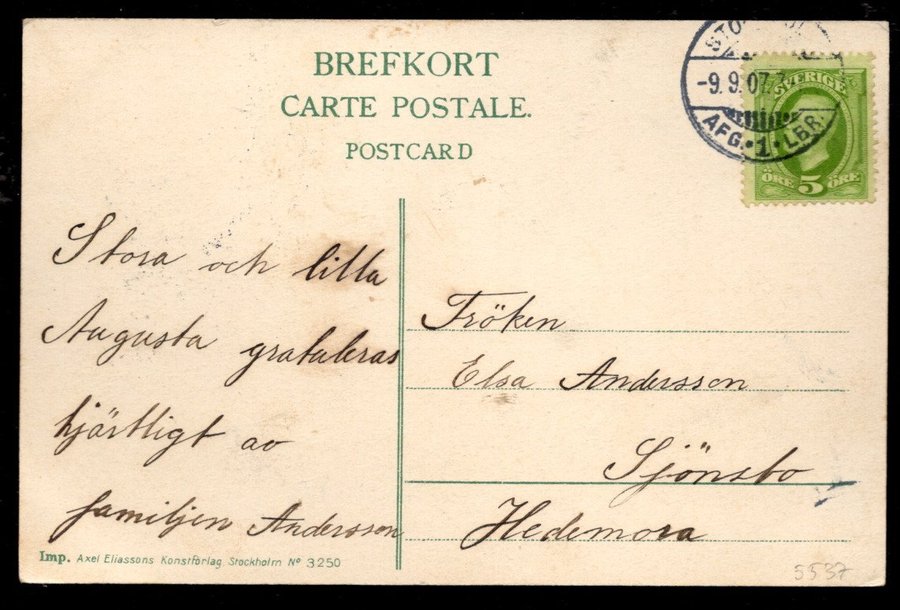 BREFKORT
CARTE POSTALE.
POSTCARD
-9. 9. 07.
AFG. • 1 • LBR.
SVERIGE
ÖRE 5 ÖRE
Stora och lilla
Augusta gratuleras
hjärtligt av
familjen Andersson
Fröken
Elsa Andersson
Sjönsbo
Hedemora
Imp. Axel Eliassons Konstförlag Stockholm Nº 3250
5537